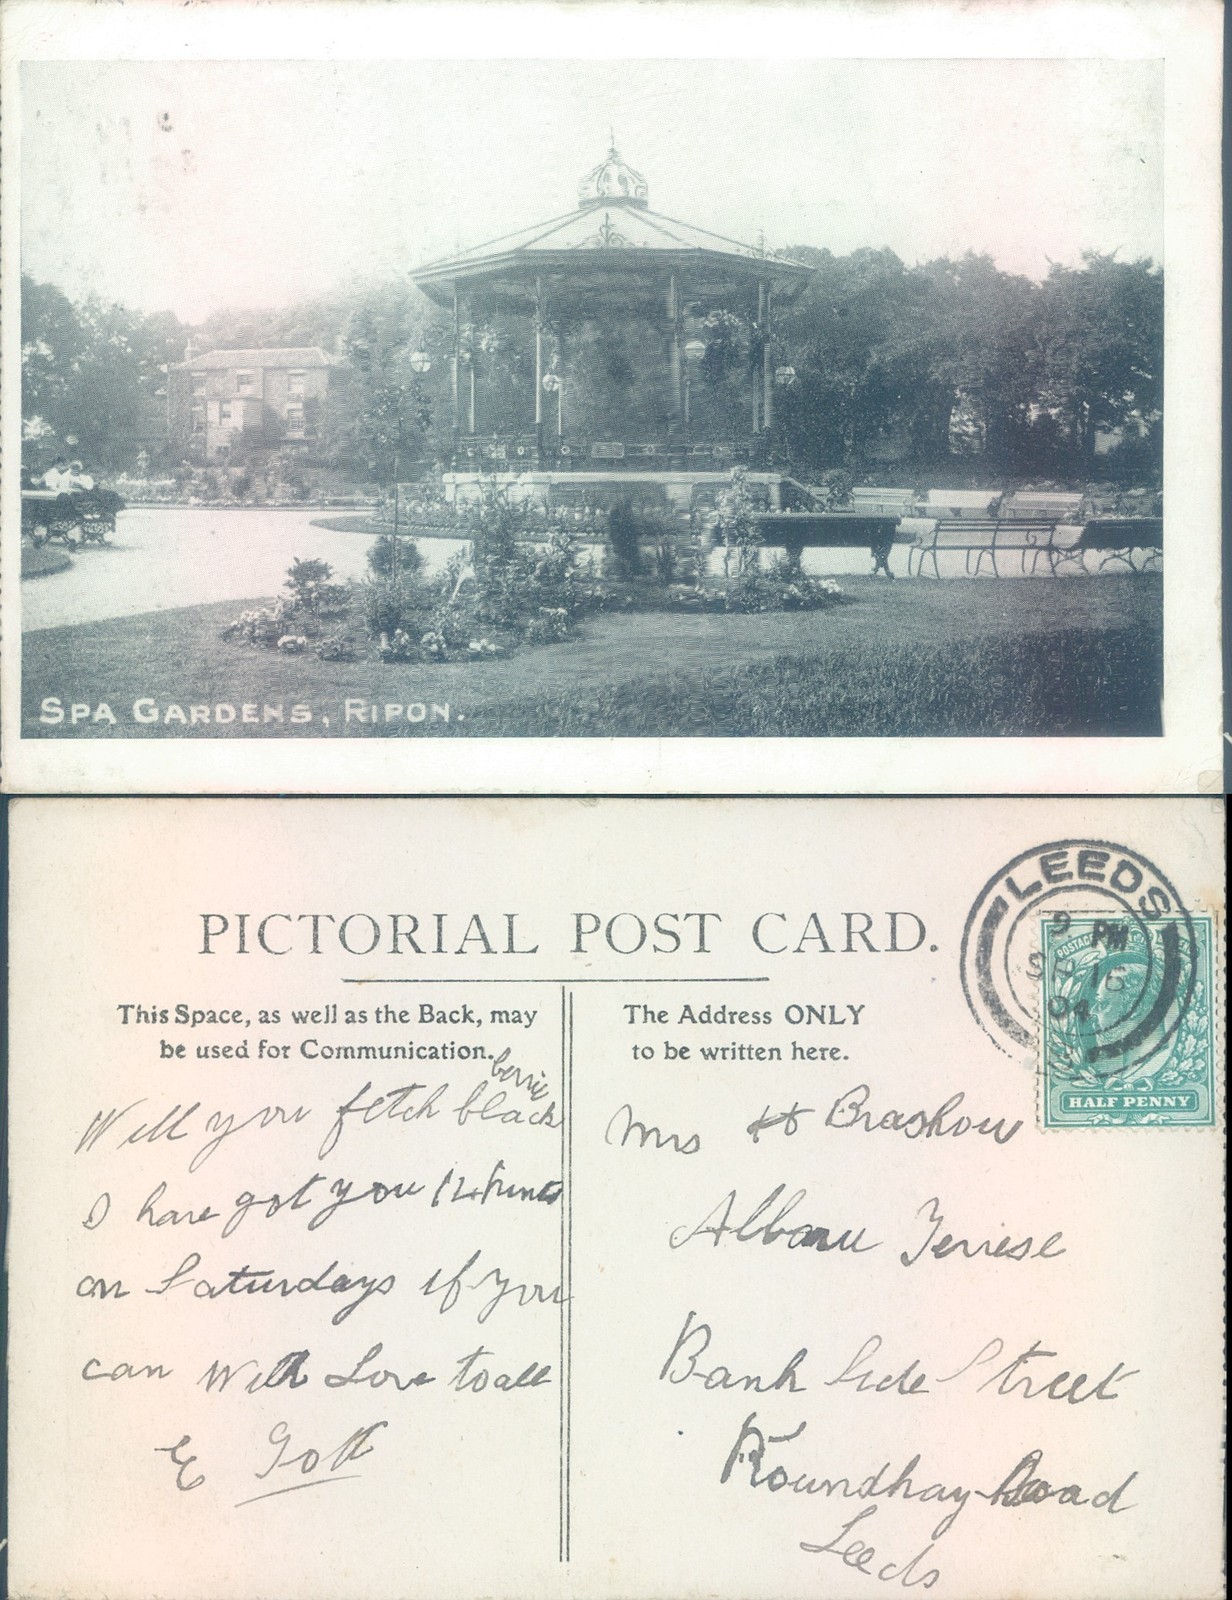 SPA GARDENS, RIPON.
PICTORIAL POST CARD.
This Space, as well as the Back, may
be used for Communication.
The Address ONLY
to be written here.
LEEDS
9 PM
SP 16
04
POSTAGE
HALF PENNY
berrie
Will you fetch black
I have got you 12 pints
on Saturdays if you
can With Love to all
E Gott
Mrs H Brashow
Terrese
Bank Side Street
Roundhay Road
Leeds